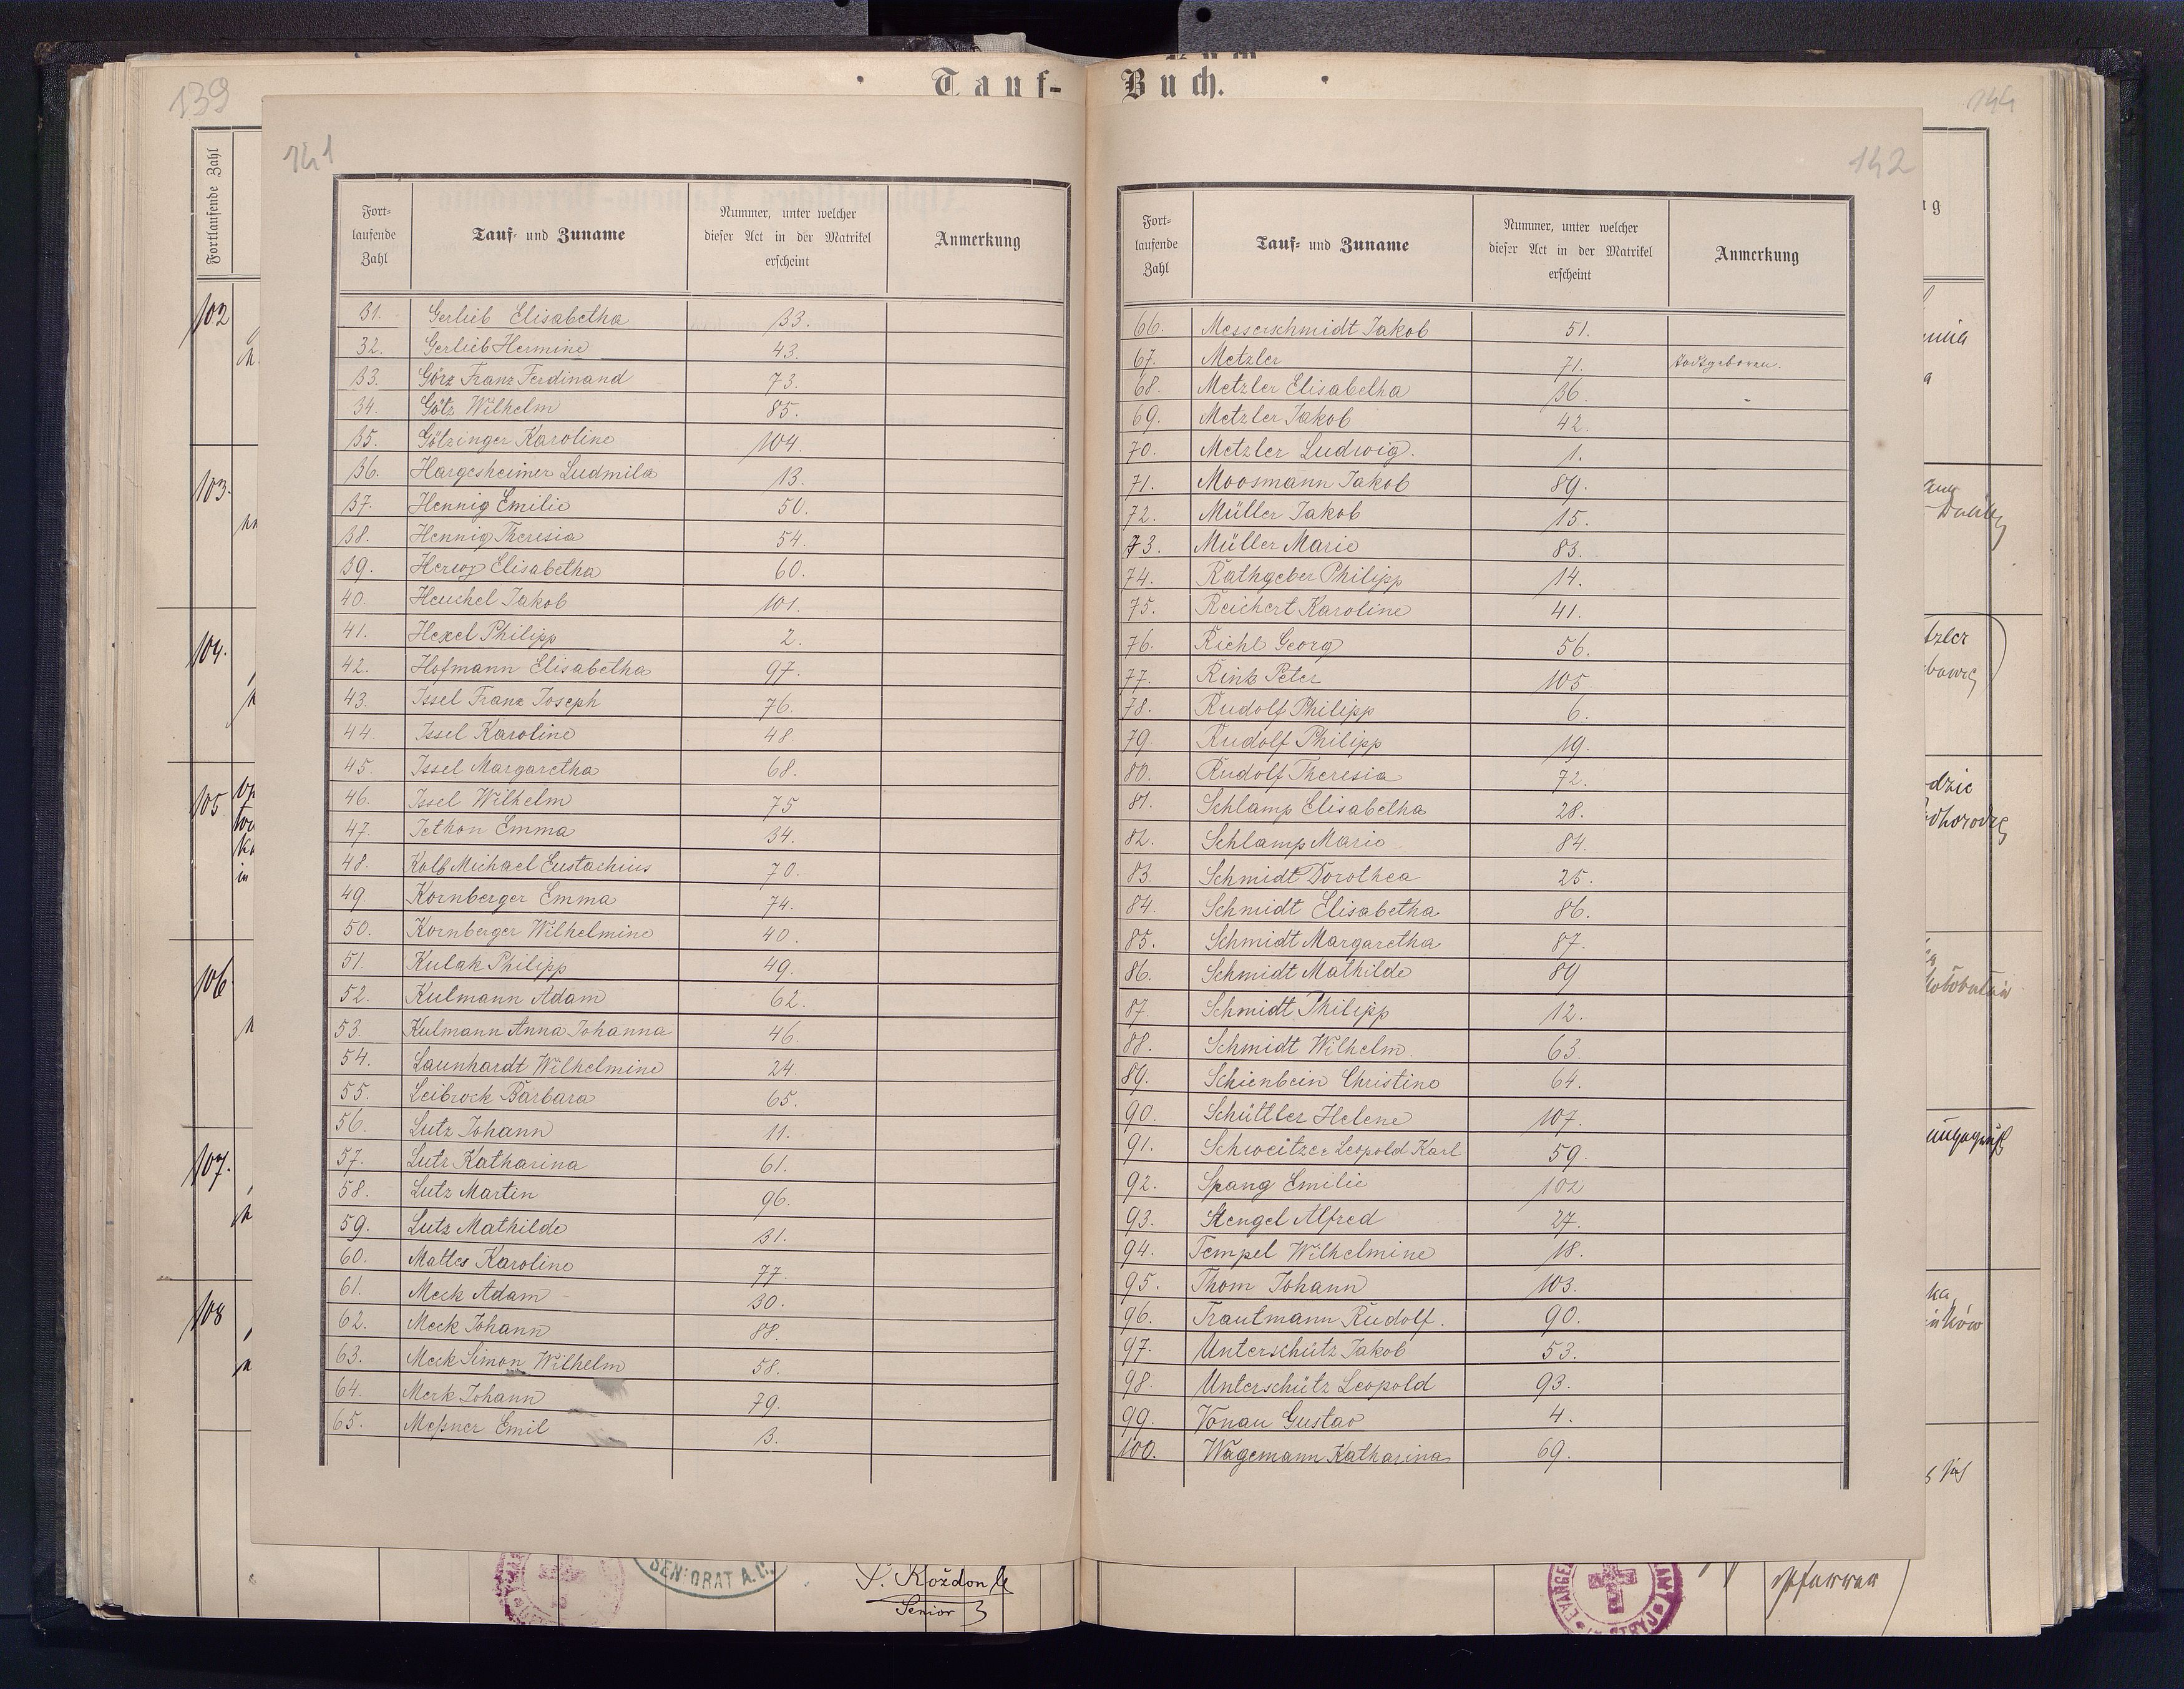 Tauf-Buch.
139
144
141
142
Fortlaufende Zahl
Fort-laufende Zahl
Tauf- und Zuname
Nummer, unter welcher dieser Act in der Matrikel erscheint
Anmerkung
31. Gerlieb Elisabetha 33.
32. Gerlieb Hermine 43.
33. Görz Franz Ferdinand 73.
34. Götz Wilhelm 85.
35. Götzinger Karoline 104.
36. Hargesheimer Ludmila 13.
37. Hennig Emilie 50.
38. Hennig Theresia 54.
39. Herwy Elisabetha 60.
40. Heuchel Jakob 101.
41. Hexel Philipp 2.
42. Hofmann Elisabetha 97.
43. Issel Franz Joseph 76.
44. Issel Karoline 48.
45. Issel Margaretha 68.
46. Issel Wilhelm 75
47. Jethon Emma 34.
48. Kolb Michael Eustachius 70.
49. Kornberger Emma 74.
50. Kornberger Wilhelmine 40.
51. Kulak Philipp 49.
52. Kulmann Adam 62.
53. Kulmann Anna Johanna 46.
54. Launhardt Wilhelmine 24.
55. Leibrock Barbara 65.
56. Lutz Johann 11.
57. Lutz Katharina 61.
58. Lutz Martin 96.
59. Lutz Mathilde 31.
60. Mattes Karoline 77.
61. Meck Adam 30.
62. Meck Johann 88.
63. Meck Simon Wilhelm 58.
64. Merk Johann 79.
65. Meßner Emil 3.
Fort-laufende Zahl
Tauf- und Zuname
Nummer, unter welcher dieser Act in der Matrikel erscheint
Anmerkung
66. Messerschmidt Jakob 51.
67. Metzler 71. Todtgeboren.
68. Metzler Elisabetha 36.
69. Metzler Jakob 42.
70. Metzler Ludwig. 1.
71. Moosmann Jakob 89.
72. Müller Jakob 15.
73. Müller Marie 83.
74. Rathgeber Philipp 14.
75. Reichert Karoline 41.
76. Richl Georg 56.
77. Rink Peter 105
78. Rudolf Philipp 6.
79. Rudolf Philipp 19.
80. Rudolf Theresia 72.
81. Schlamp Elisabetha 28.
82. Schlamp Marie 84.
83. Schmidt Dorothea 25.
84. Schmidt Elisabetha 86.
85. Schmidt Margaretha 87.
86. Schmidt Mathilde 89
87. Schmidt Philipp 12.
88. Schmidt Wilhelm. 63.
89. Schienbein Christine 64.
90. Schüttler Helene 107.
91. Schweitzer Leopold Karl 59.
92. Spang Emilie 102
93. Stengel Alfred 27.
94. Tempel Wilhelmine 18.
95. Thom Johann 103.
96. Trautmann Rudolf. 90.
97. Unterschütz Jakob 53.
98. Unterschütz Leopold 93.
99. Vonau Gustav 4.
100. Wagemann Katharina 69.
102
103.
104.
105
106
107.
108
SENIORAT A.C.
Kożdon
Senior
EVANGE
STRYJ
Pfarrer